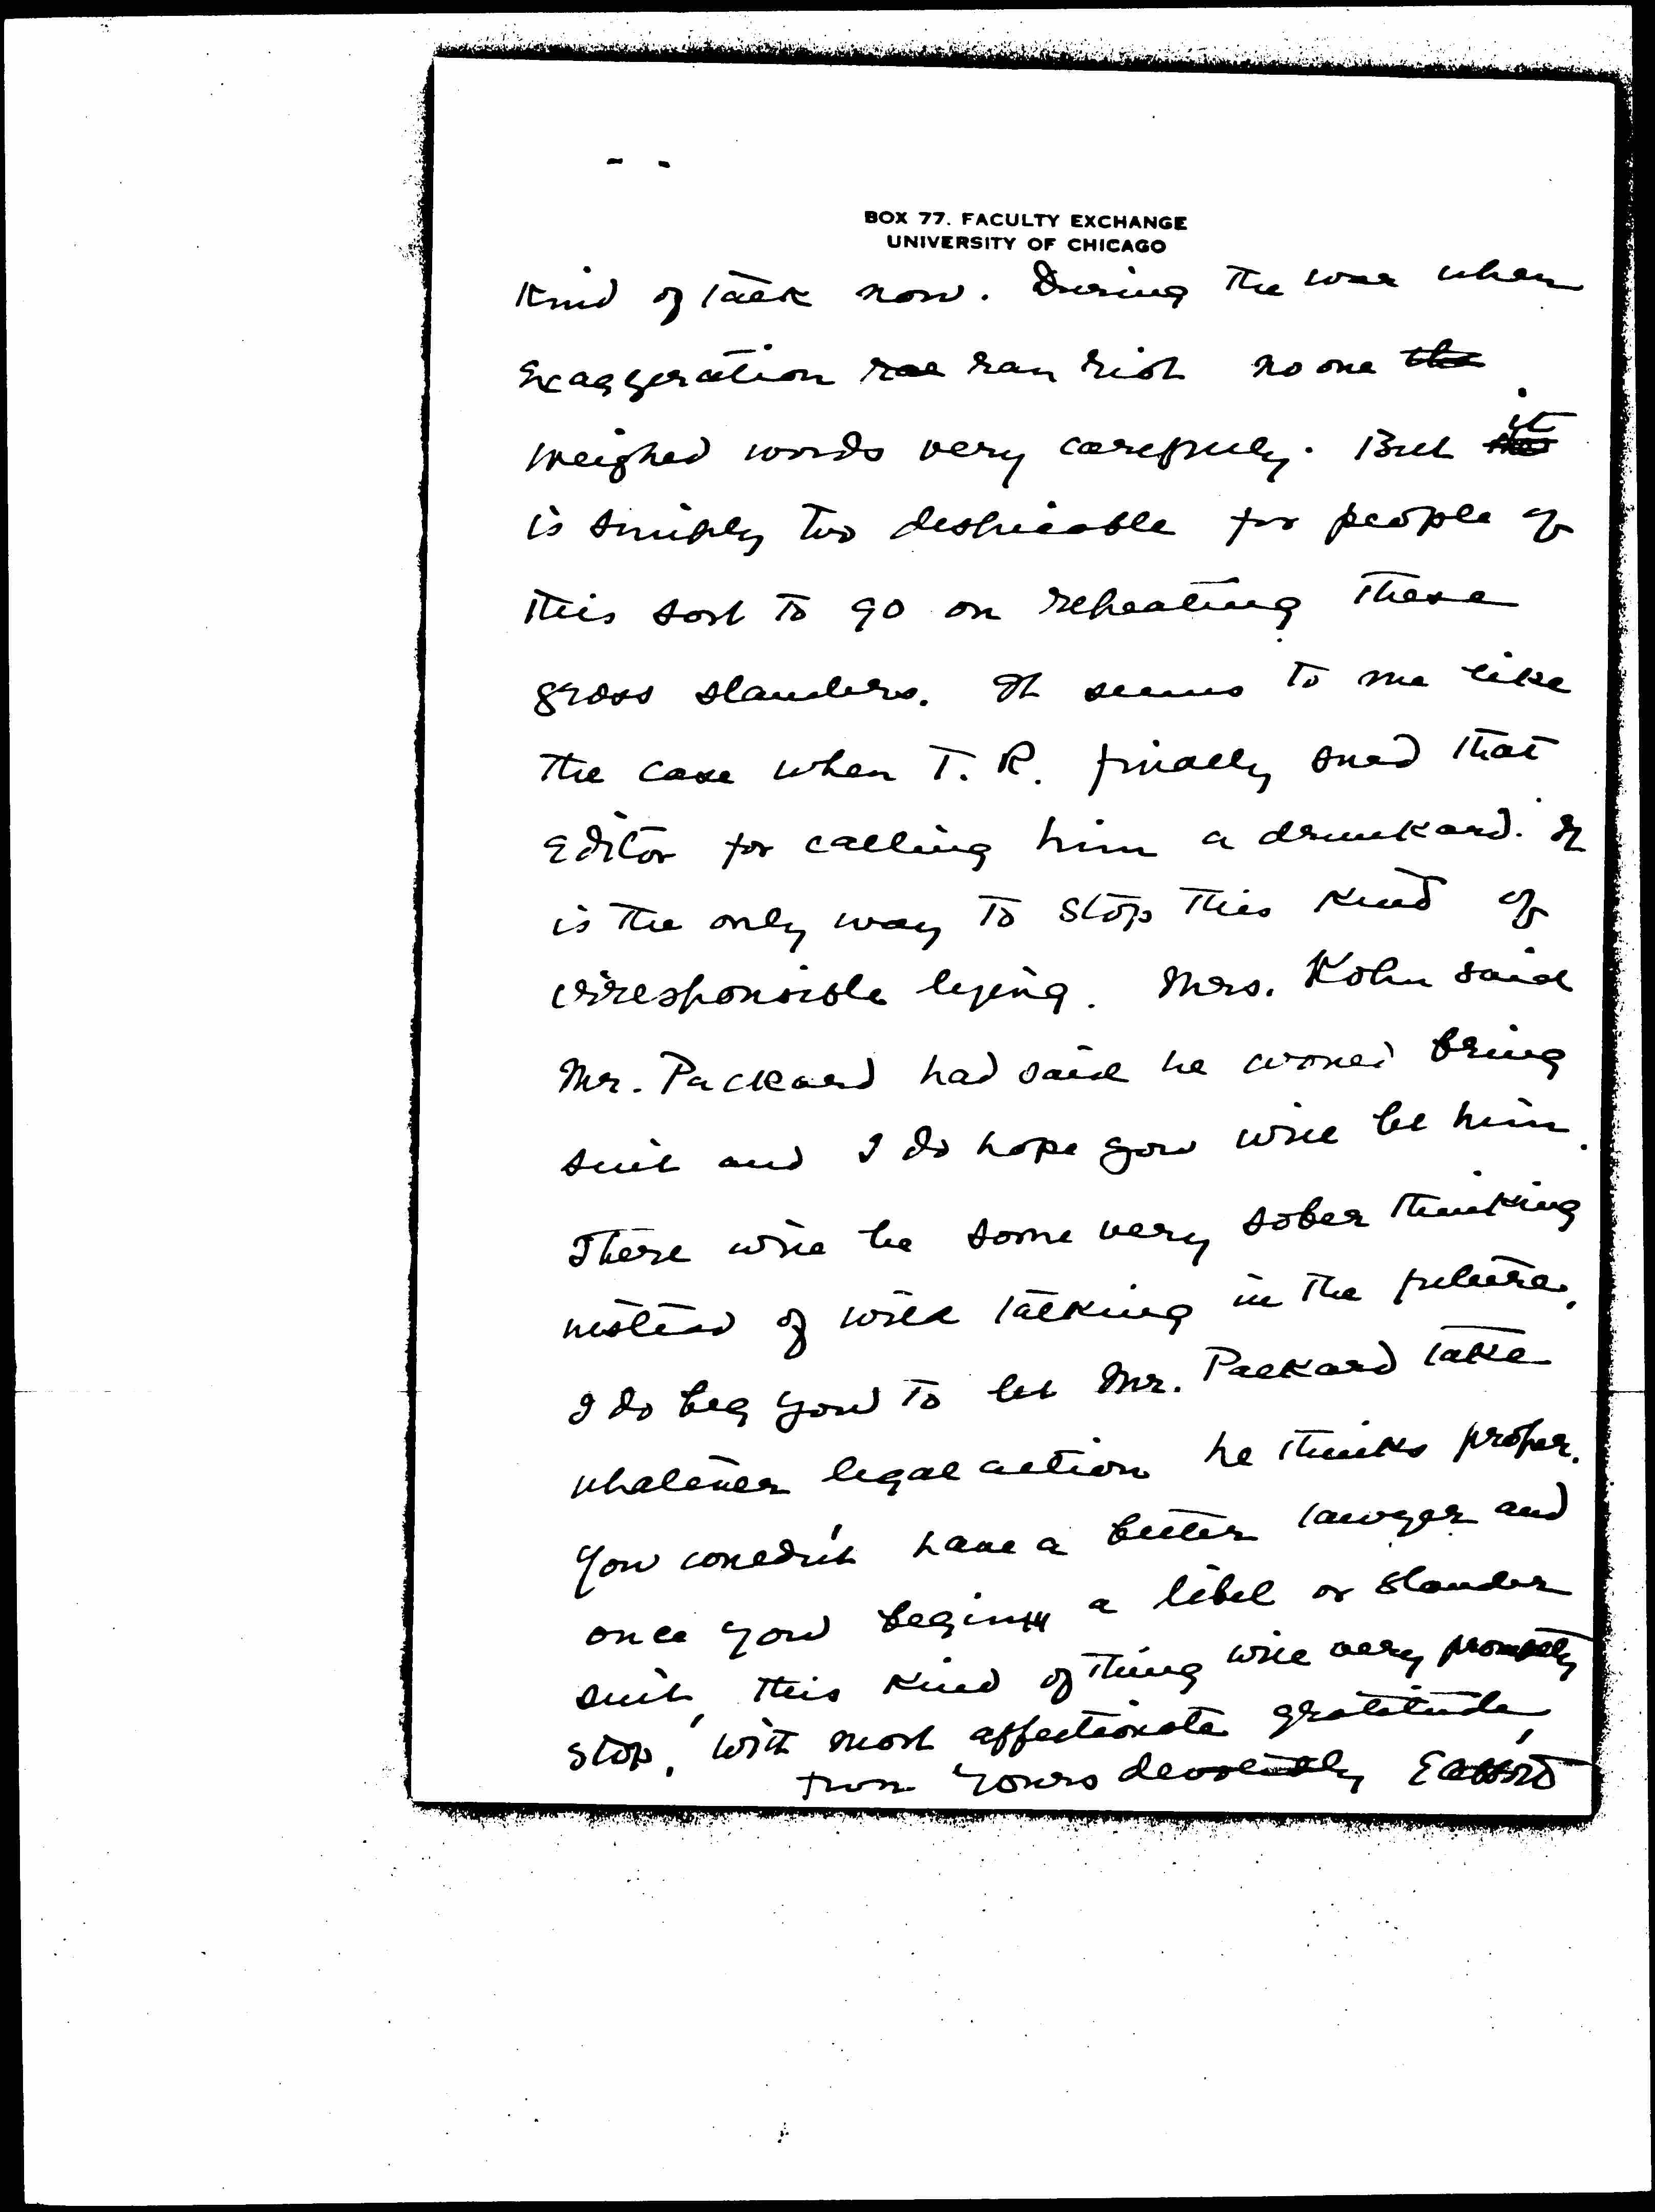 BOX 77. FACULTY EXCHANGE
UNIVERSITY OF CHICAGO
kind of talk now. During the war when
exaggeration ran riot no one the
weighed words very carefully. But it
is simply too despicable for people of
this sort to go on repeating these
gross slanders. It seems to me like
the case when T. R. finally sued that
editor for calling him a drunkard. It
is the only way to stop this kind of
irresponsible lying. Mrs. Kohn said
Mr. Packard had said he would bring
suit and I do hope you will let him.
There will be some very sober thinking
instead of wild talking in the future.
I do beg you to let Mr. Packard take
whatever legal action he thinks proper.
You couldn't have a better lawyer and
once you begin a libel or slander
suit, this kind of thing will very promptly
stop. With most affectionate gratitude,
from yours devotedly